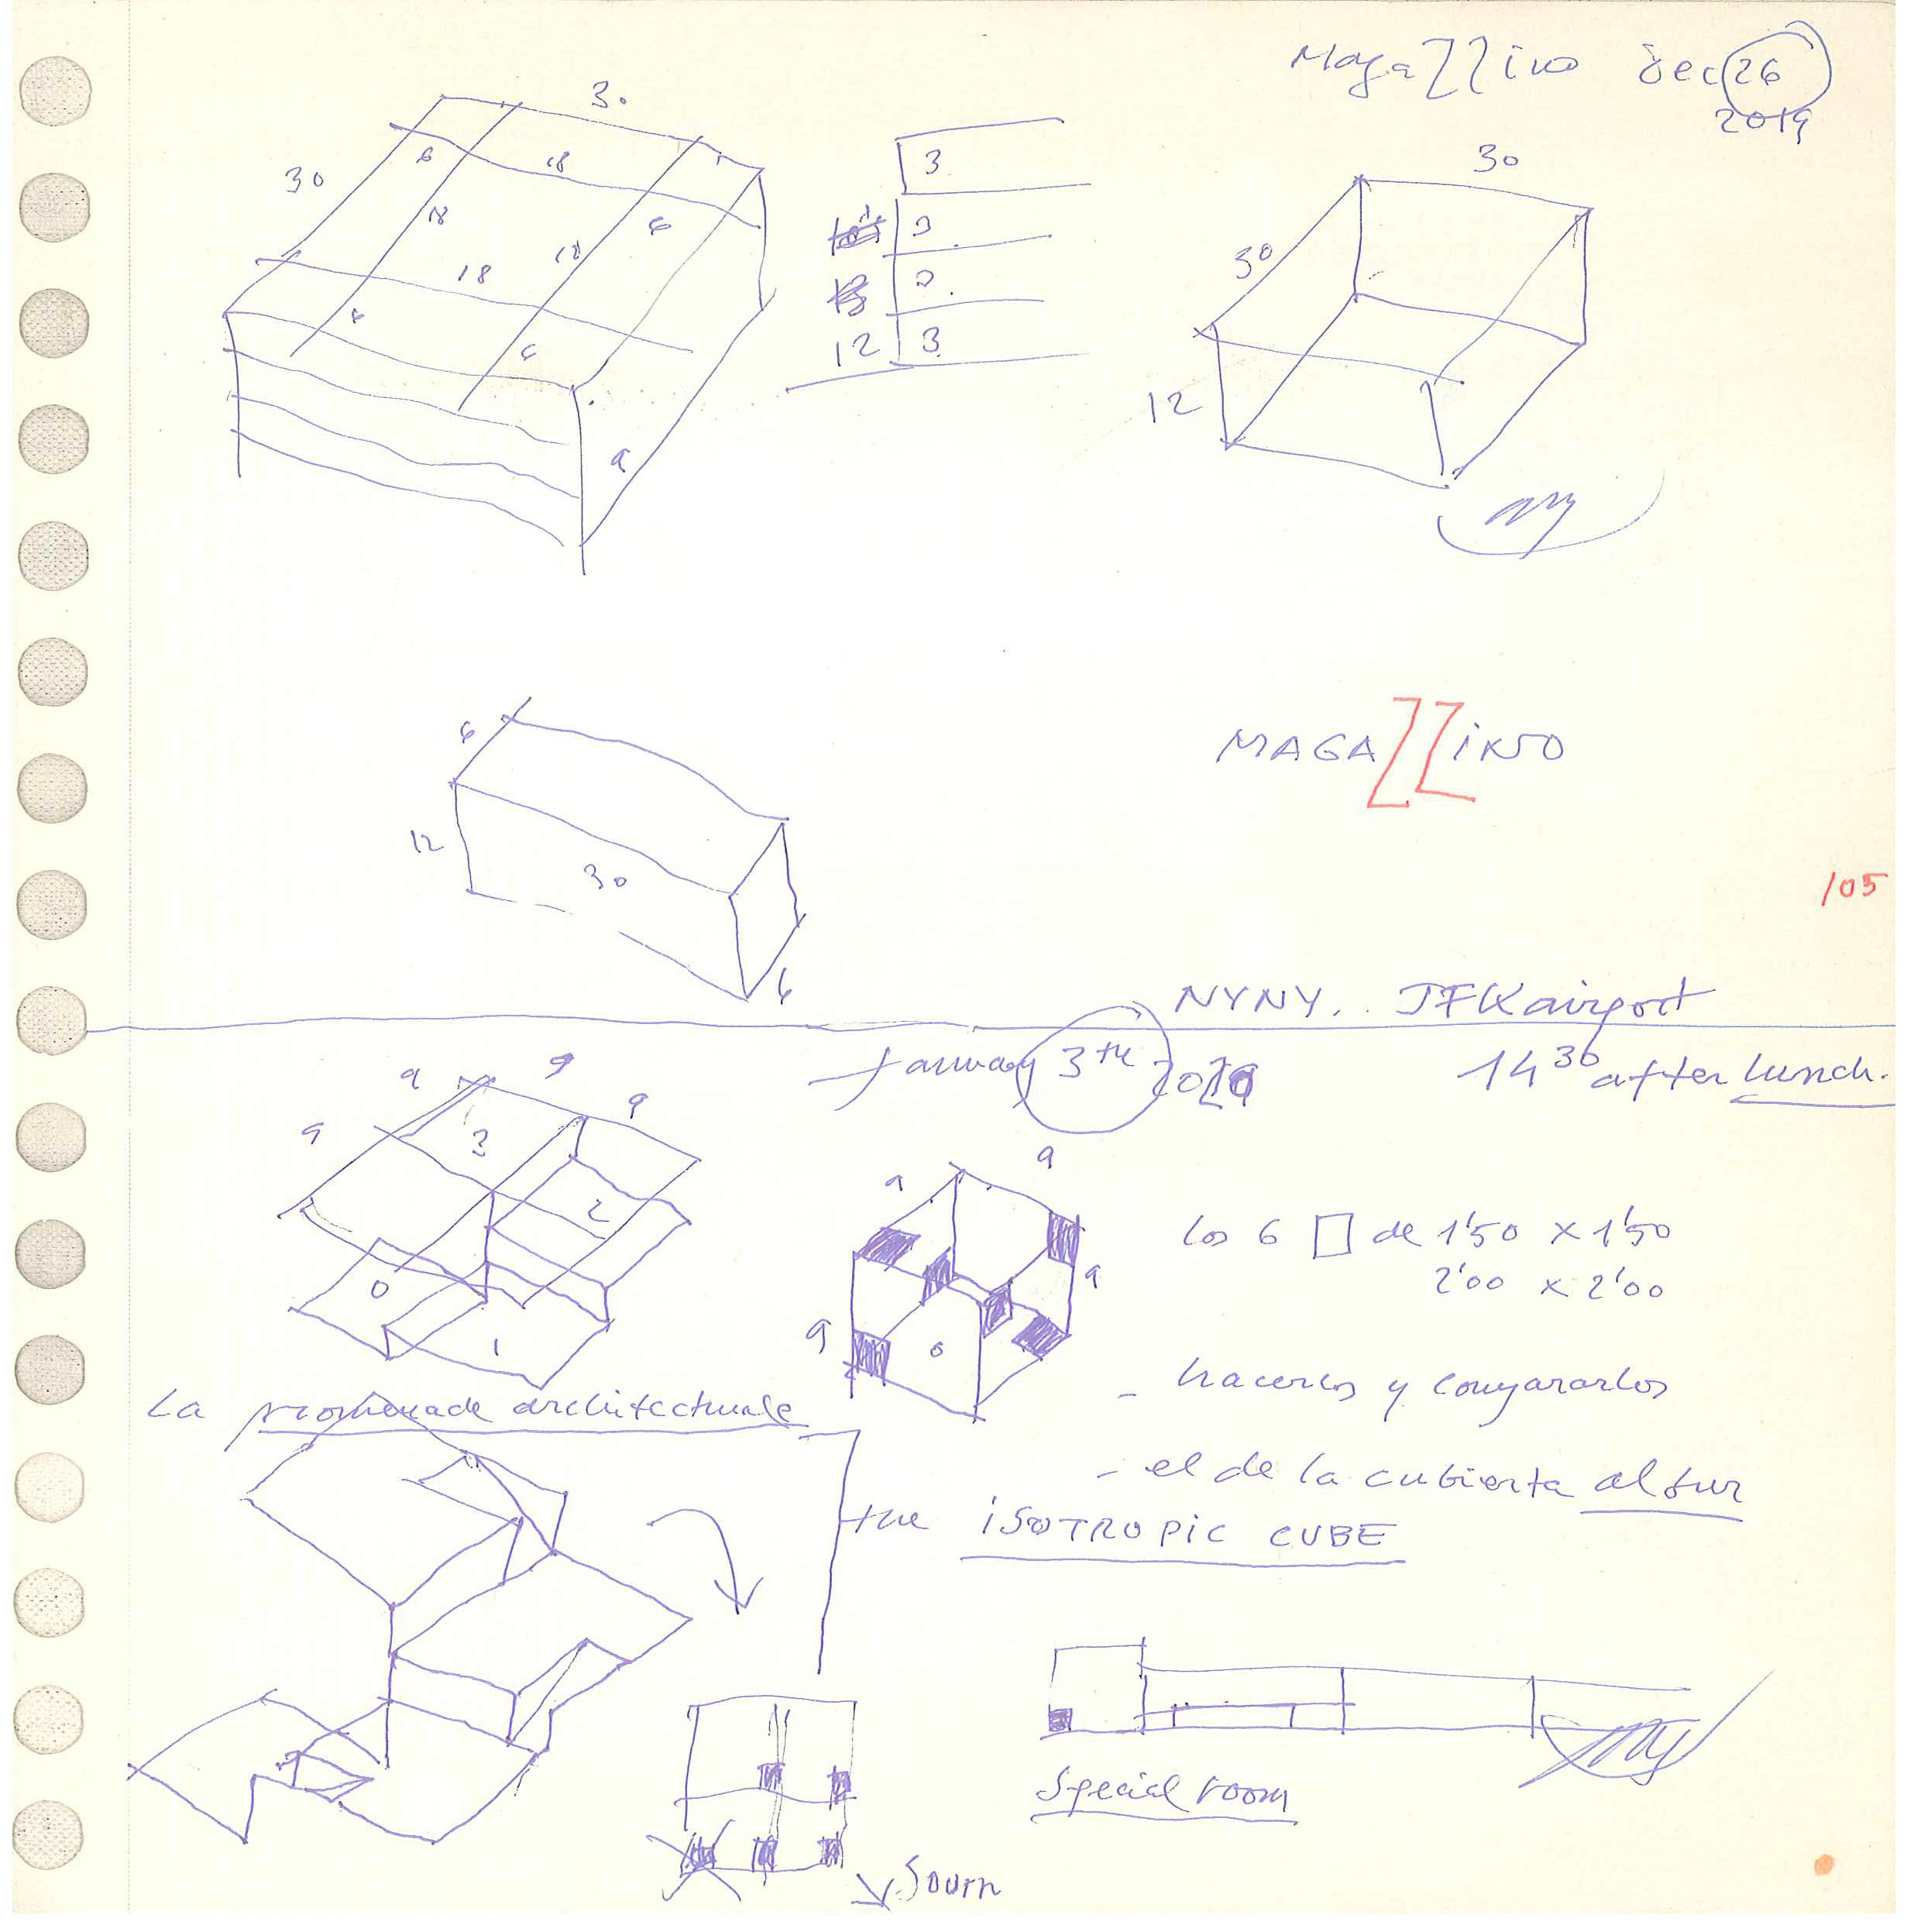 MagaZZino dec 26
2019
30
30
30
6
18
3
30
18
6
3
12
18
3
6
12
3
6
12
9
6
MAGAZZINO
12
30
105
6
NYNY. JFK airport
January 3th 2020
14 30 after lunch.
9
9
9
9
3
2
9
9
los 6 □ de 1'50 x 1'50
0
9
2'00 x 2'00
9
0
1
- hacerlos y compararlos
La promenade architectuale
- el de la cubierta al sur
the ISOTROPIC CUBE
Special room
South